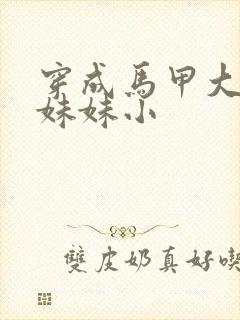 穿成馬甲大
妹妹小
雙皮奶真好喫